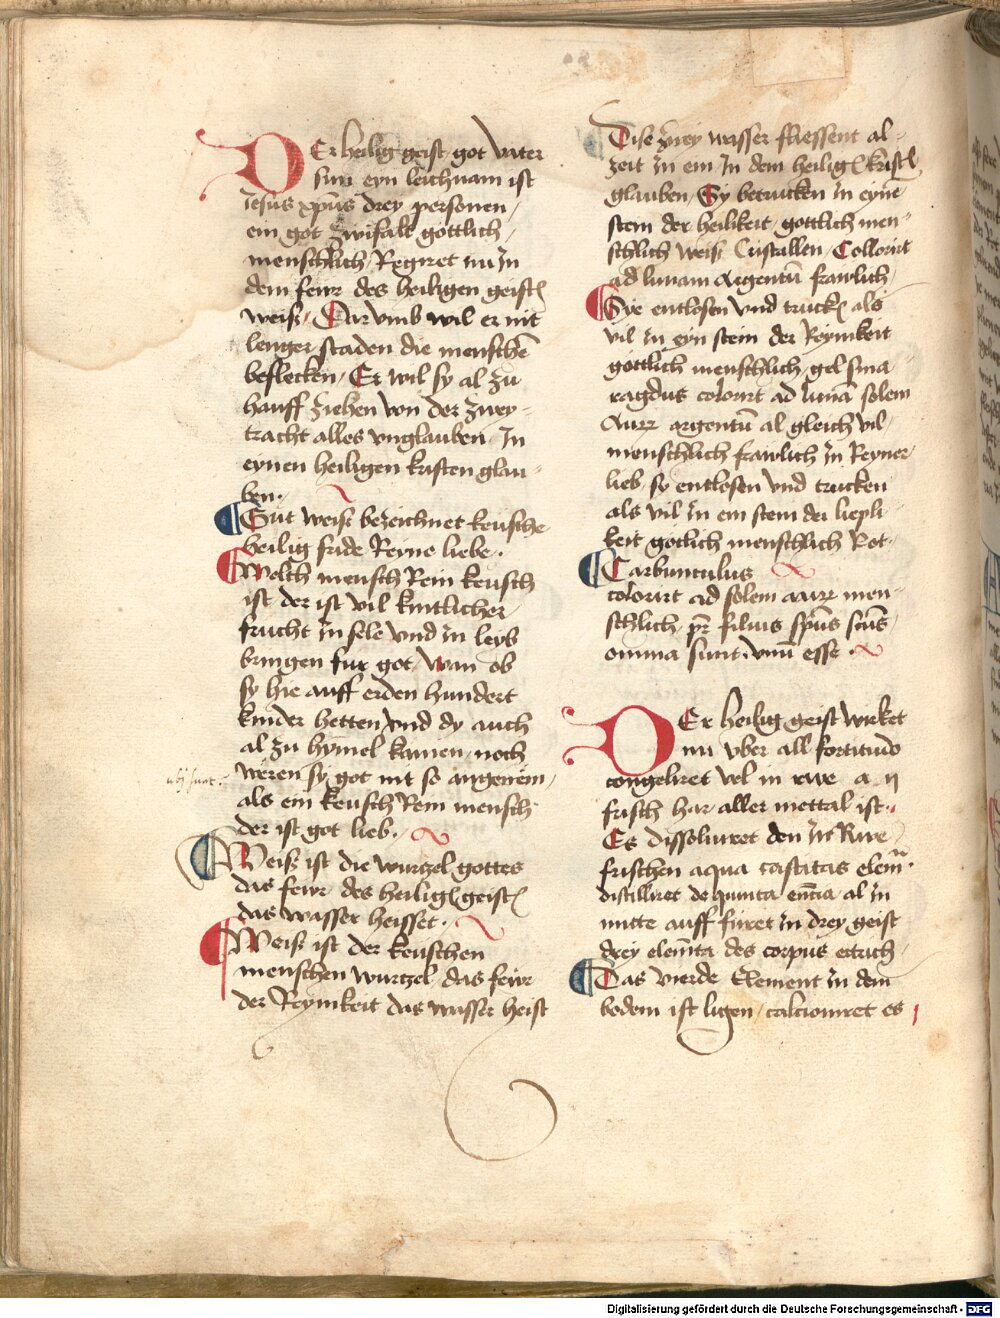 DEr heilig geist got vater
sun eyn leichnam ist
iesus xpus drey personen /
ein got zwifalt gottlich /
menschlich / Regiret nu in
dem fewr des heiligen geist
weiß / Dar vmb wil er nit
lenger staden die menschen
beflecken / Er wil sy al zu
hauff ziehen von der zwey-
tracht alles vnglauben In
eynen heiligen kristen glau-
ben.
Gut weiß bezeichnet keusche
heilig fride Reine liebe.
Welch mensch Rein keusch
ist der ist vil kintlicher
frucht in sele vnd in leyb
bringen fur got / wan ob
sy hie auff erden hundert
kinder hetten vnd dy auch
al zu hymel kamen / noch
weren sy got nit so angenem /
als ein keusch Rein mensch
der ist got lieb.
Weiß ist die wurtzel gottes
das fewr des heilig geist
das wasser heisset.
Weiß ist der keuschen
menschen wurtzel das fewr
der Reynikeit das wasser heist
Dise zwey wasser fliessent al-
zeit in ein in dem heilig krist
glauben / Sy betrucken in eyn
stein der heilikeit gottlich men-
schlich weiß Cristallen / Collorirt
ad lunam argentu frawlich /
Sye entlosen vnd truck als
vil in eyn stein der Reynikeit
gottlich menschlich / gel sma
ragdus colorirt ad luna solem
Aurr argentu al gleich vil
menschlich frawlich in Reyner
lieb / sy entlosen vnd trucken
als vil in ein stein der liepli
keit gotlich menschlich Rot
Carbunculus
colorirt ad solem aurr men-
schlich / pr filius spus scus
omnia sunt vnu esse.
DEr heilig geist wircket
nu vber all fortitudo
congeliret vel in rwe a
frisch har aller mettal ist.
Es dissoluiret den in Rwe
frischen aqua castitas elem
distilliret de quinta encia al in
mitte auff furet in drey geist
drey elementa des corpus ertrich /
Das vierde Element in dem
bodem ist ligen / calcioniret es
Digitalisierung gefördert durch die Deutsche Forschungsgemeinschaft - DFG